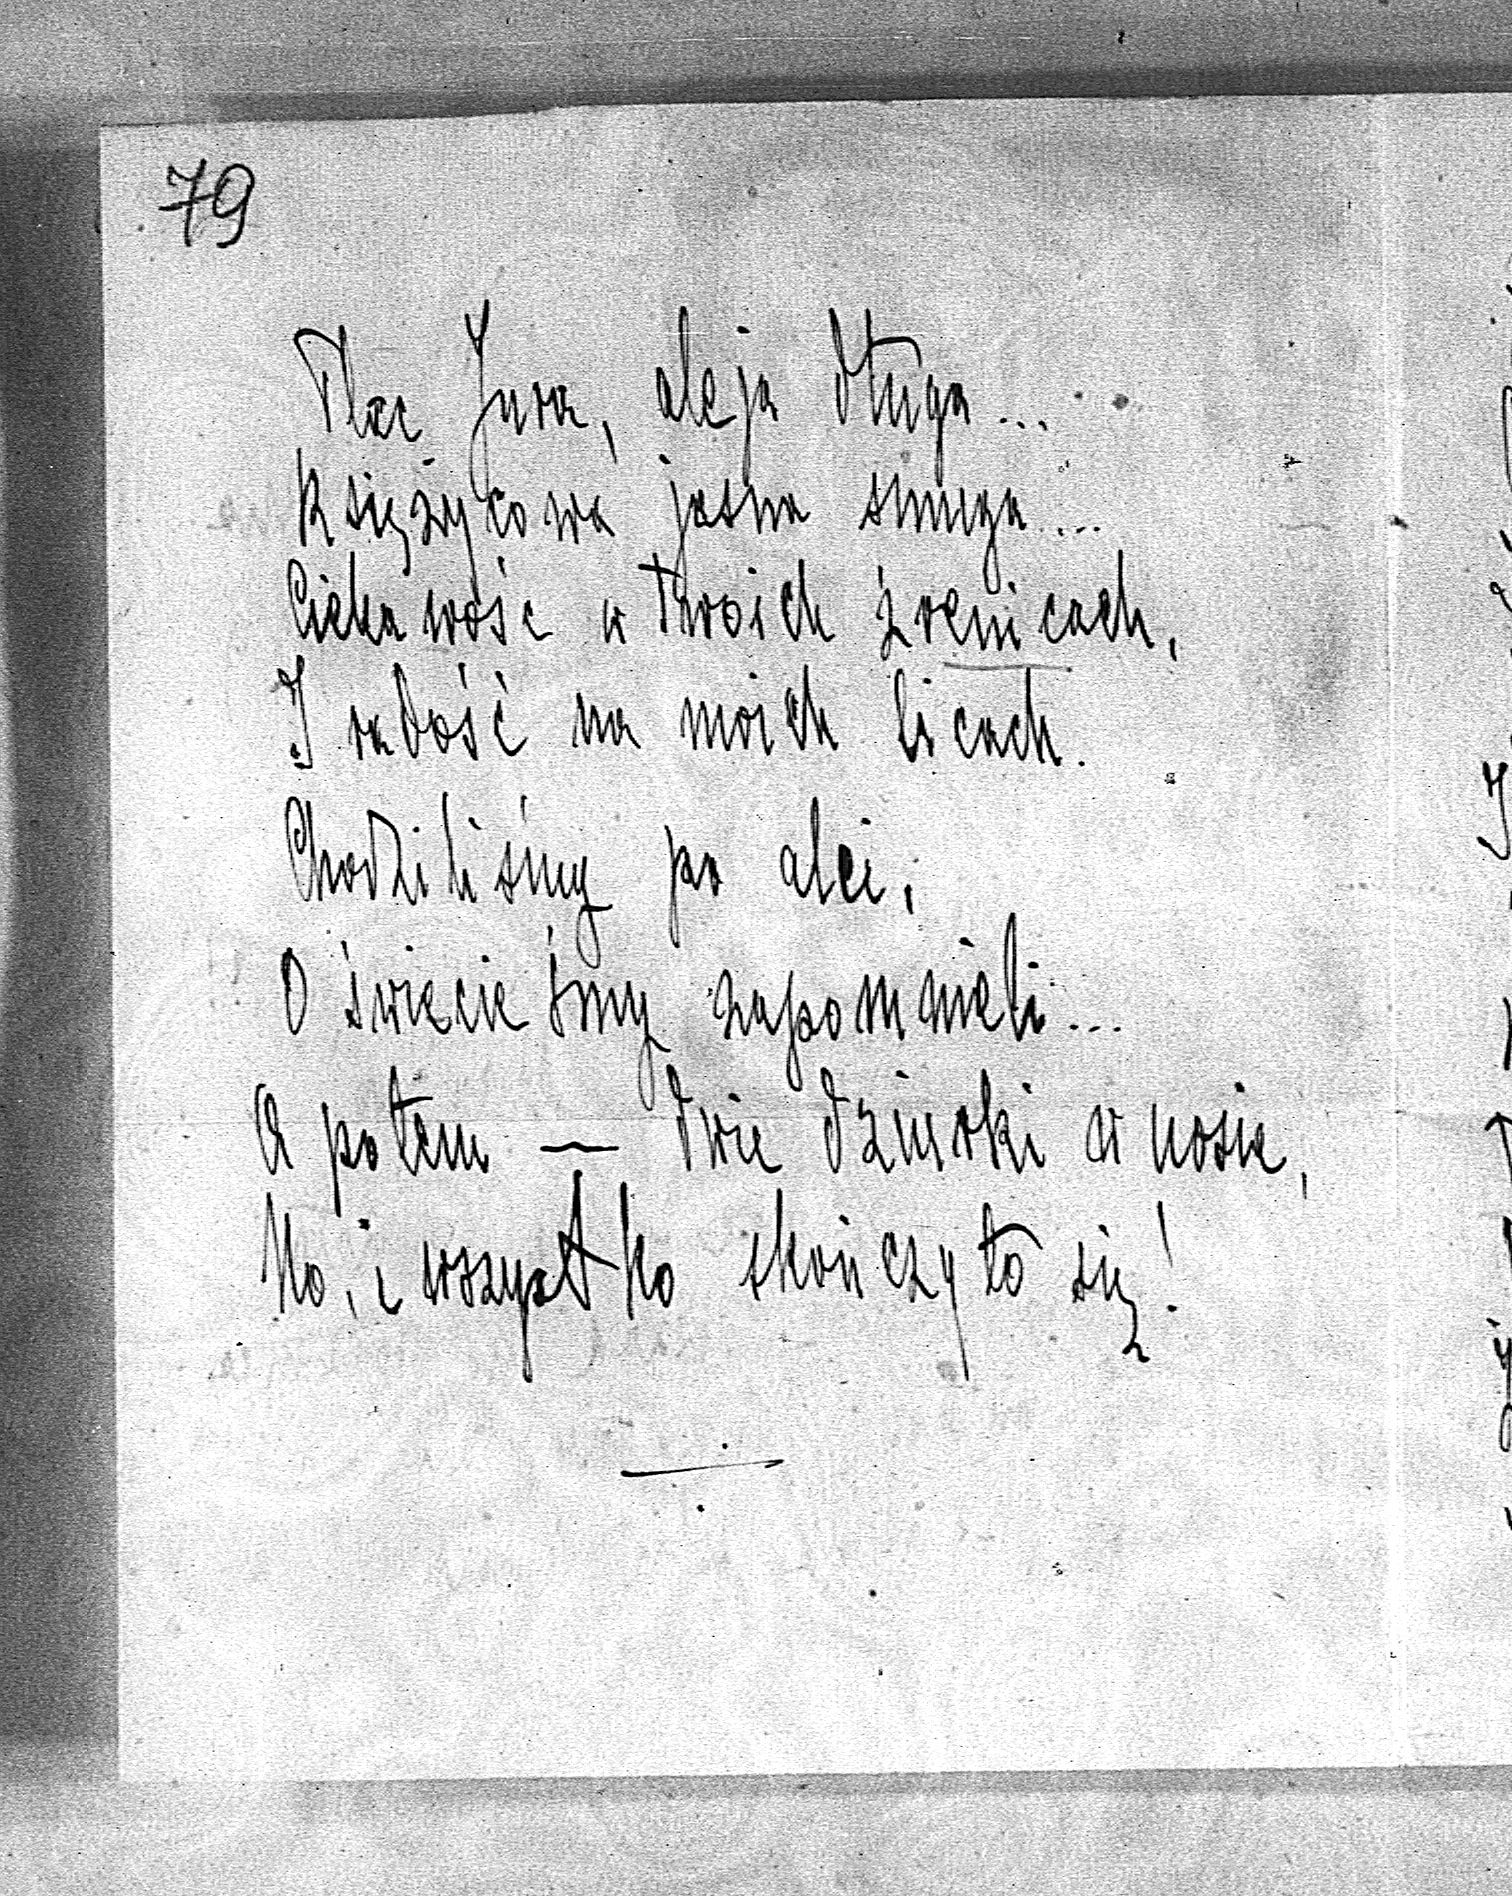 79
Plac Jura, aleja długa...
Księżycowa jasna smuga...
Ciekawość w Twoich źrenicach,
I radość na moich licach.
Chodziliśmy po alei,
O świecieśmy zapomnieli...
A potem — dwie dziurki w nosie,
No, i wszystko skończyło się!